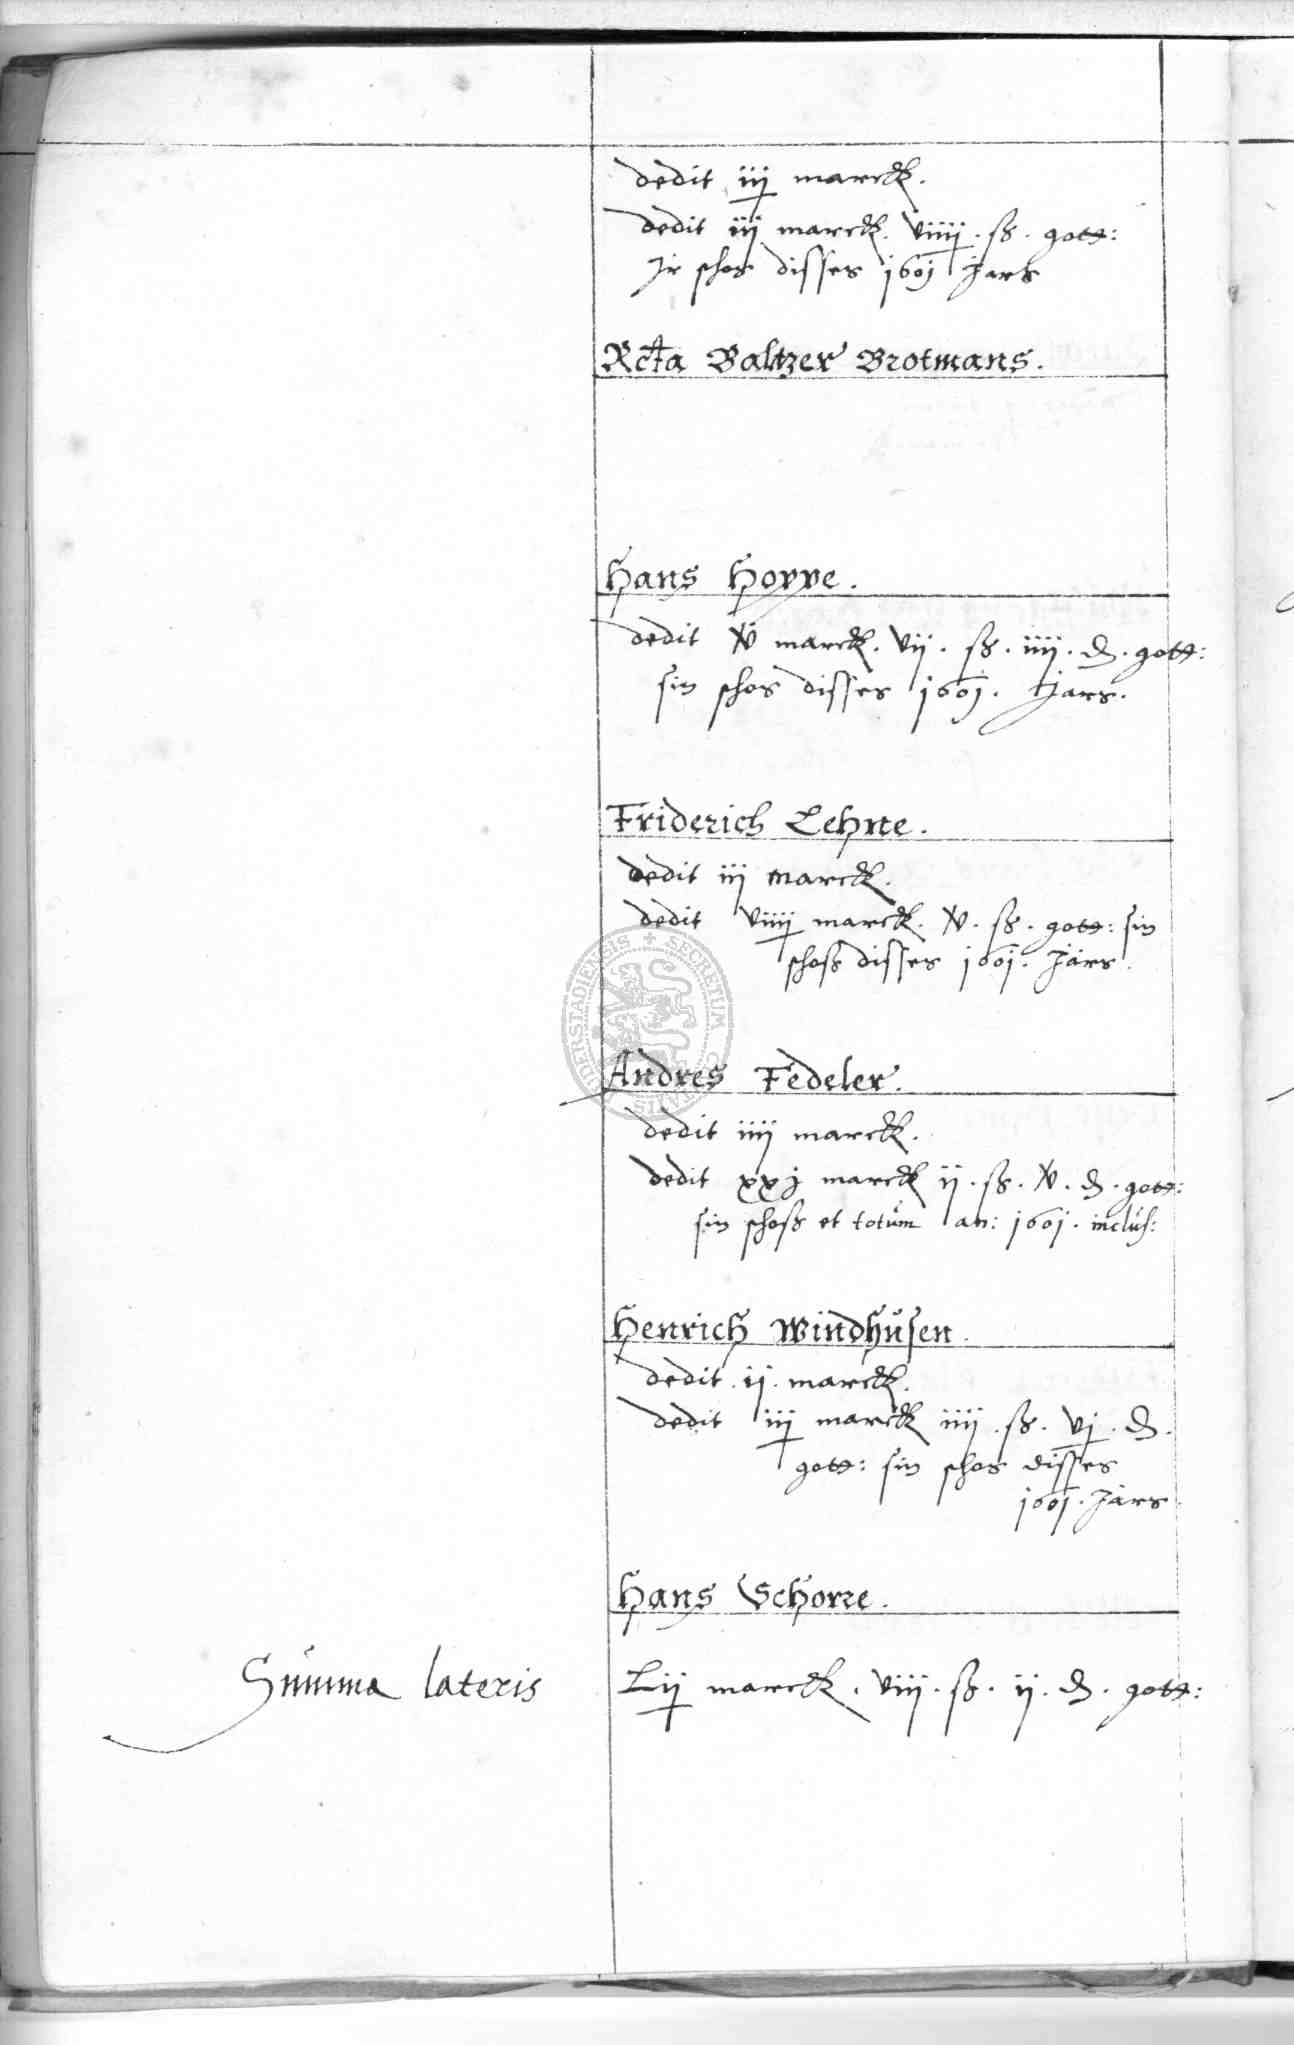 dedit iij marck.
dedit iij marck. viiij. ß. gott:
Jr schos disses 1601 Jars
Rcta Baltzer Brotmans.
Hans Hoppe.
dedit v marck. vij. ß. iiij. d. gott:
sin schos disses 1601. Jars.
Friderich Lehne.
dedit iij marck.
dedit viiij marck. v. ß. gott: sin
schoss disses 1601. Jars.
Andres Fedeler.
dedit iiij marck.
dedit xxj marck ij. ß. v. d. gott:
sin schoss et totum an: 1601. inclus:
Henrich Windhusen.
dedit. ij. marck.
dedit iij marck iiij. ß. vj. d.
gott: sin schos disses
1601. Jars
Hans Schorre.
Summa lateris Lij marck. viij. ß. ij. d. gott:
SECRETUM